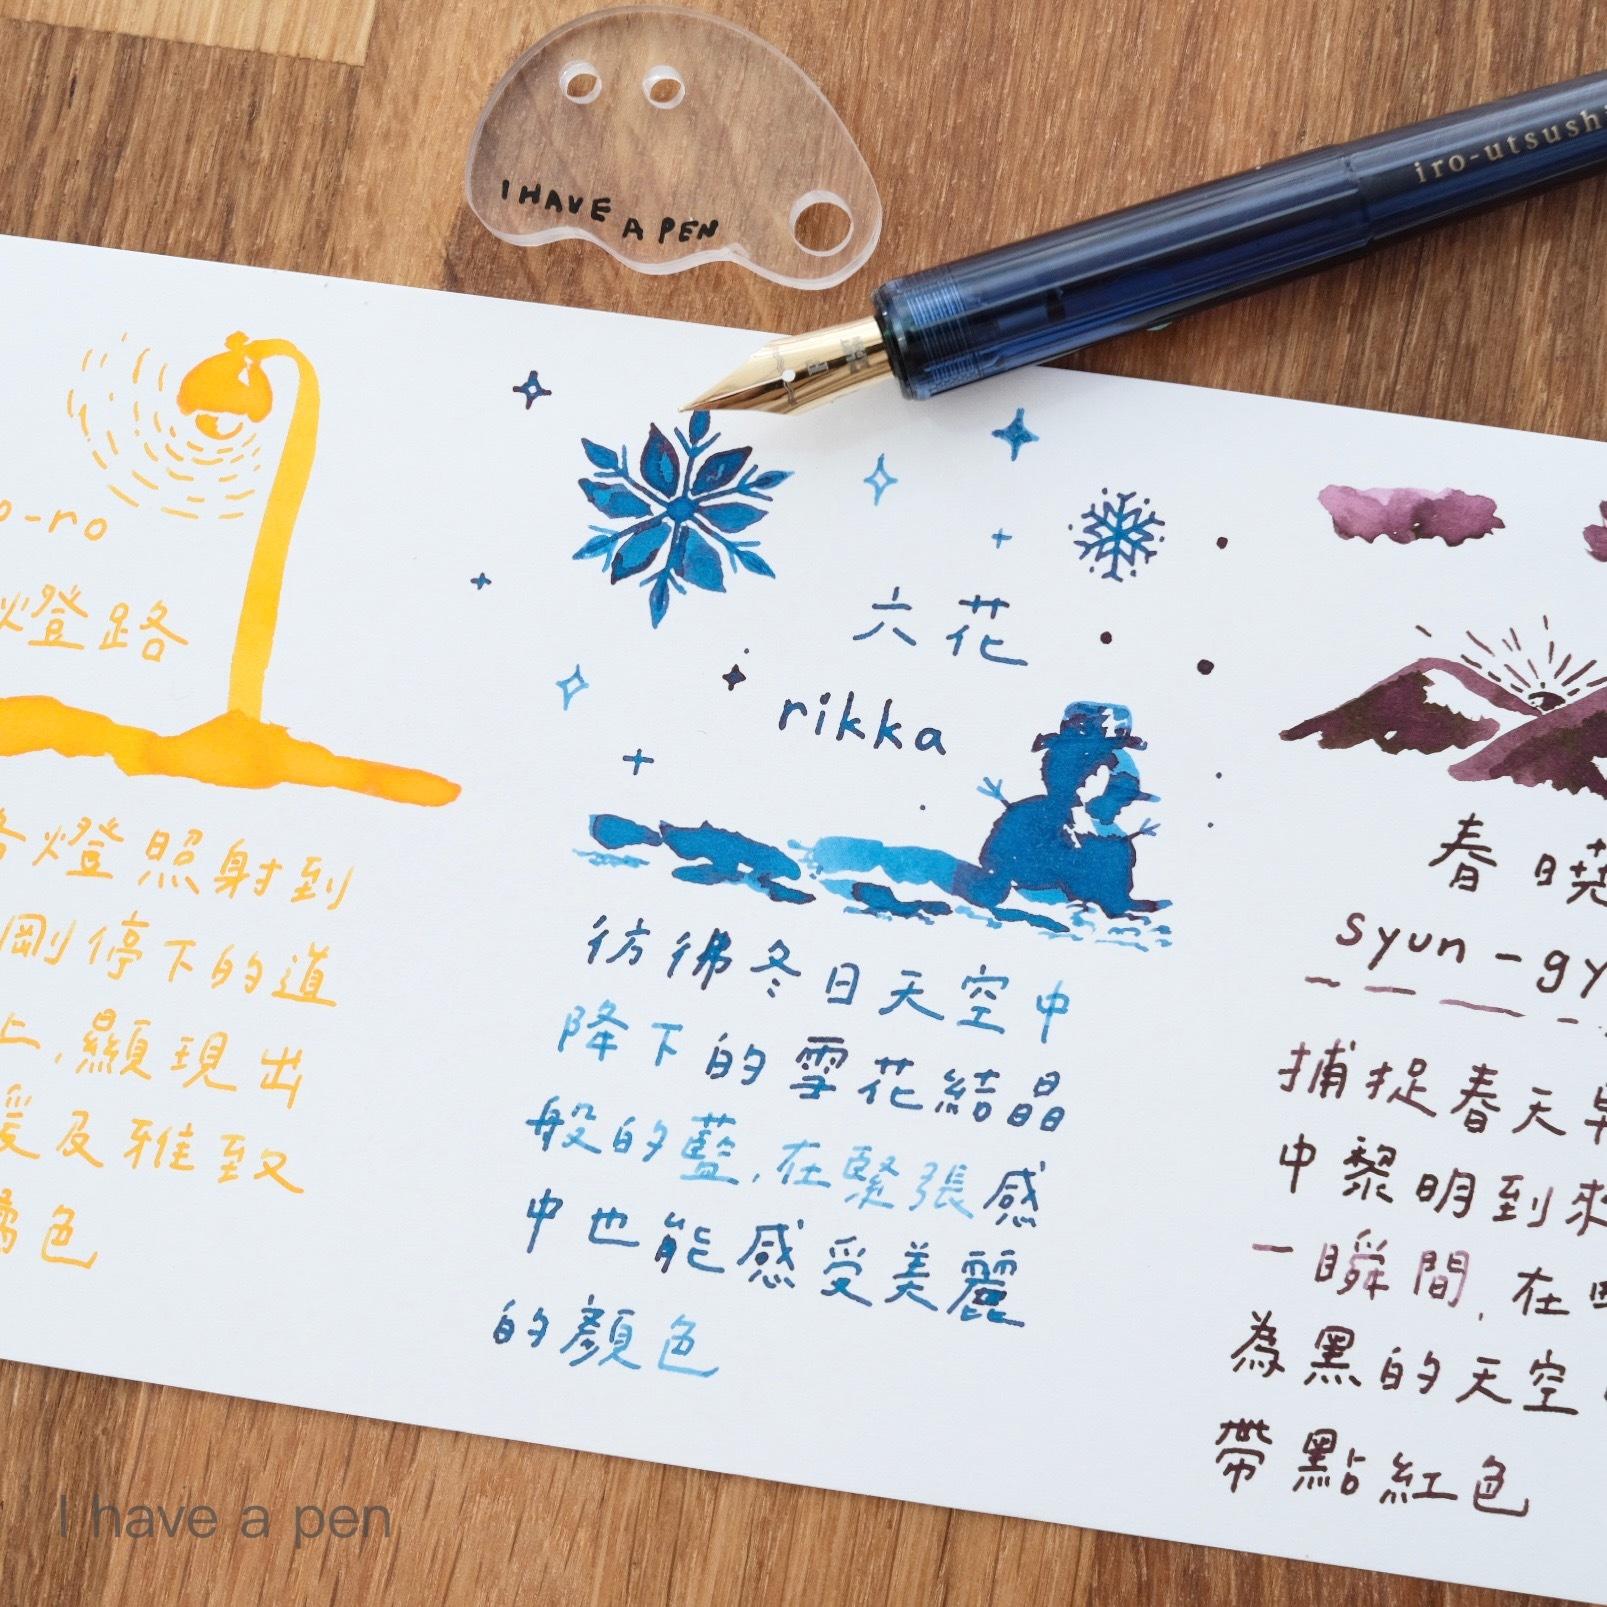 I HAVE
A PEN
iro-utsushi
o-ro
燈路
燈照射到
剛停下的道
上,顯現出
及雅致
色
六花
rikka
彷彿冬日天空中
降下的雪花結晶
般的藍,在緊張感
中也能感受美麗
的顏色
春曉
syun-gy
捕捉春天早
中黎明到來
一瞬間,在
為黑的天空
帶點紅色
I have a pen